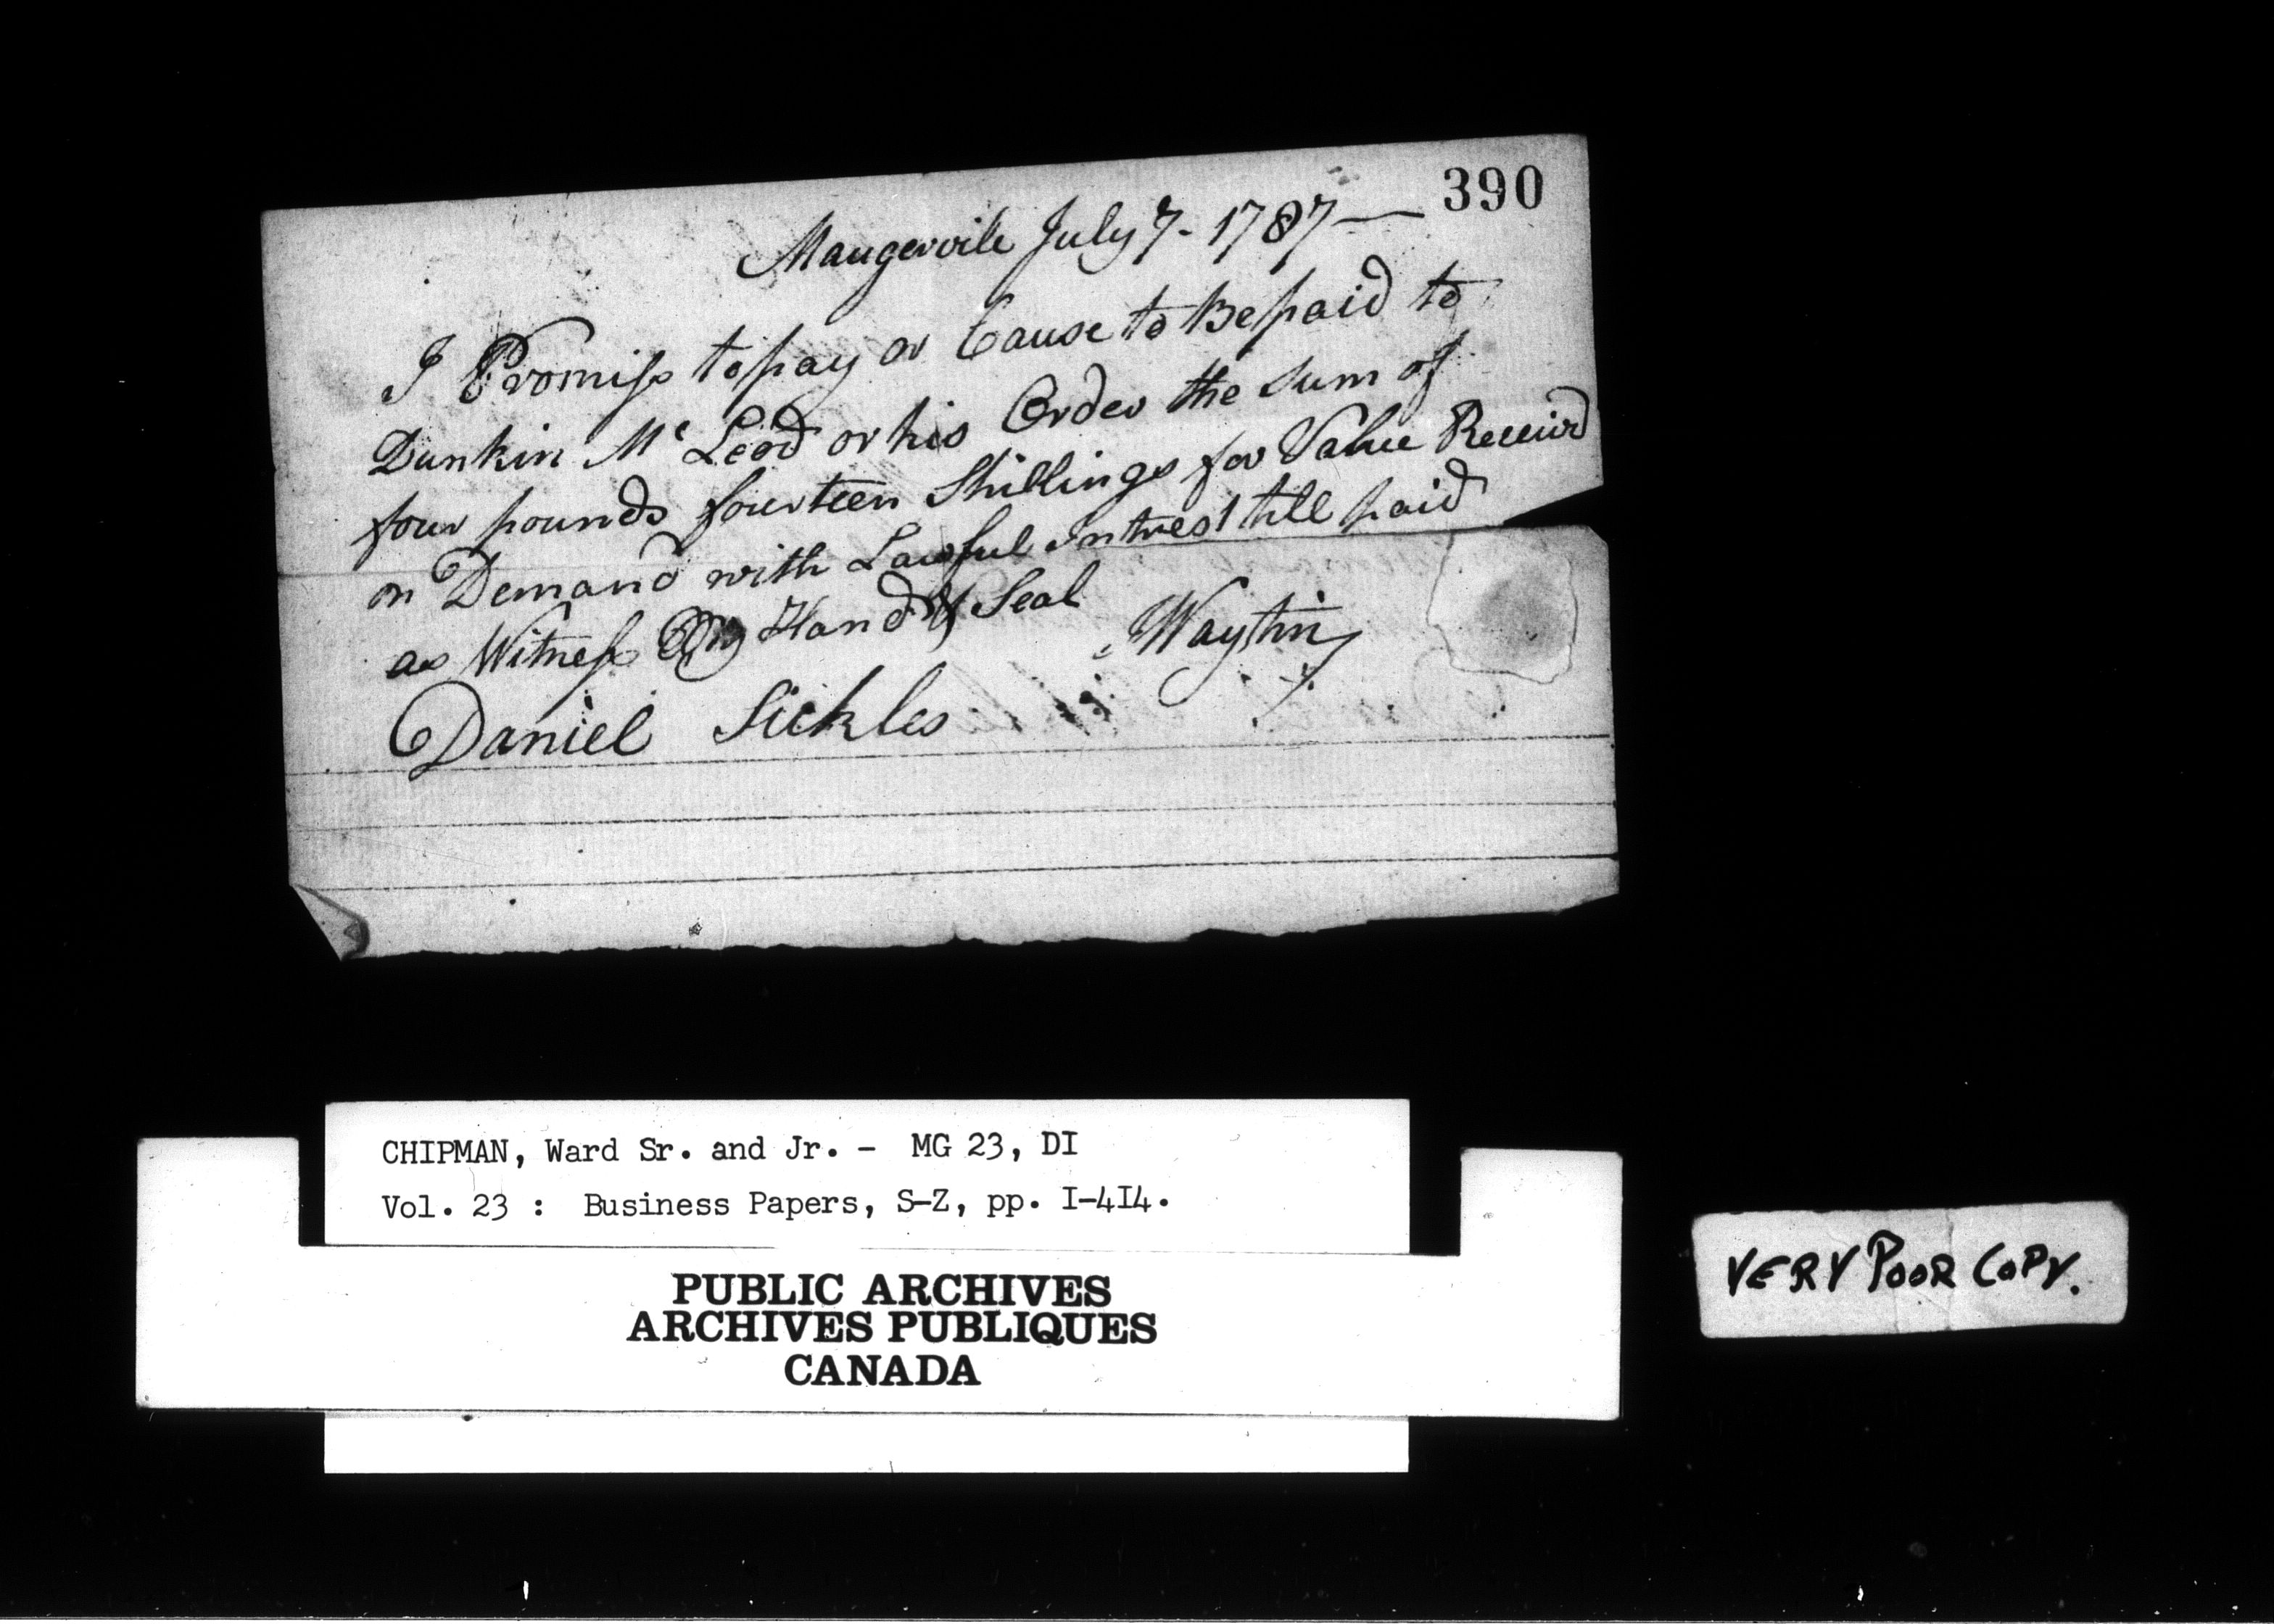 390
Maugervile July 7 - 1787 —
I Promiss to pay or Cause to Be paid to
Dunkin Mc Leod or his Order the Sum of
four pounds fourteen Shillings for Value Receivd
on Demand with Lawful Intrest till paid
as Witness My Hand & Seal
Daniel Sickles
CHIPMAN, Ward Sr. and Jr. - MG 23, DI
Vol. 23 : Business Papers, S-Z, pp. I-4I4.
PUBLIC ARCHIVES
ARCHIVES PUBLIQUES
CANADA
VERY POOR COPY.